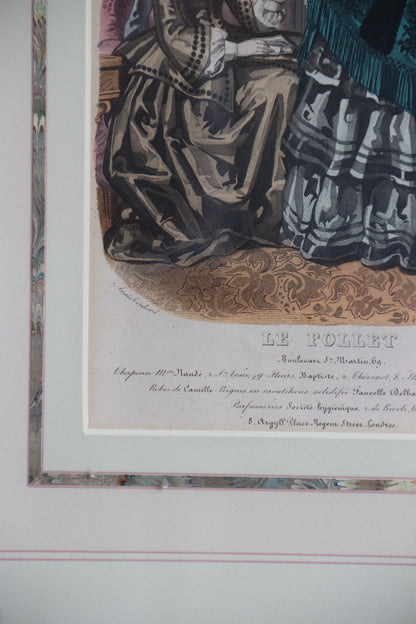 LE FOLLET
Boulevart St. Martin, 69.
Chapeau Mme Naudé, r. Ste Anne, 79 - Fleurs, Baptiste, r. Thévenot, 8
Robes de Camille - Peignes en caoutchouc solidifié Fauvelle Delba
Parfumeries Société hygiénique, r. de Rivoli,
8, Argyll Place, Regent Street, Londres.